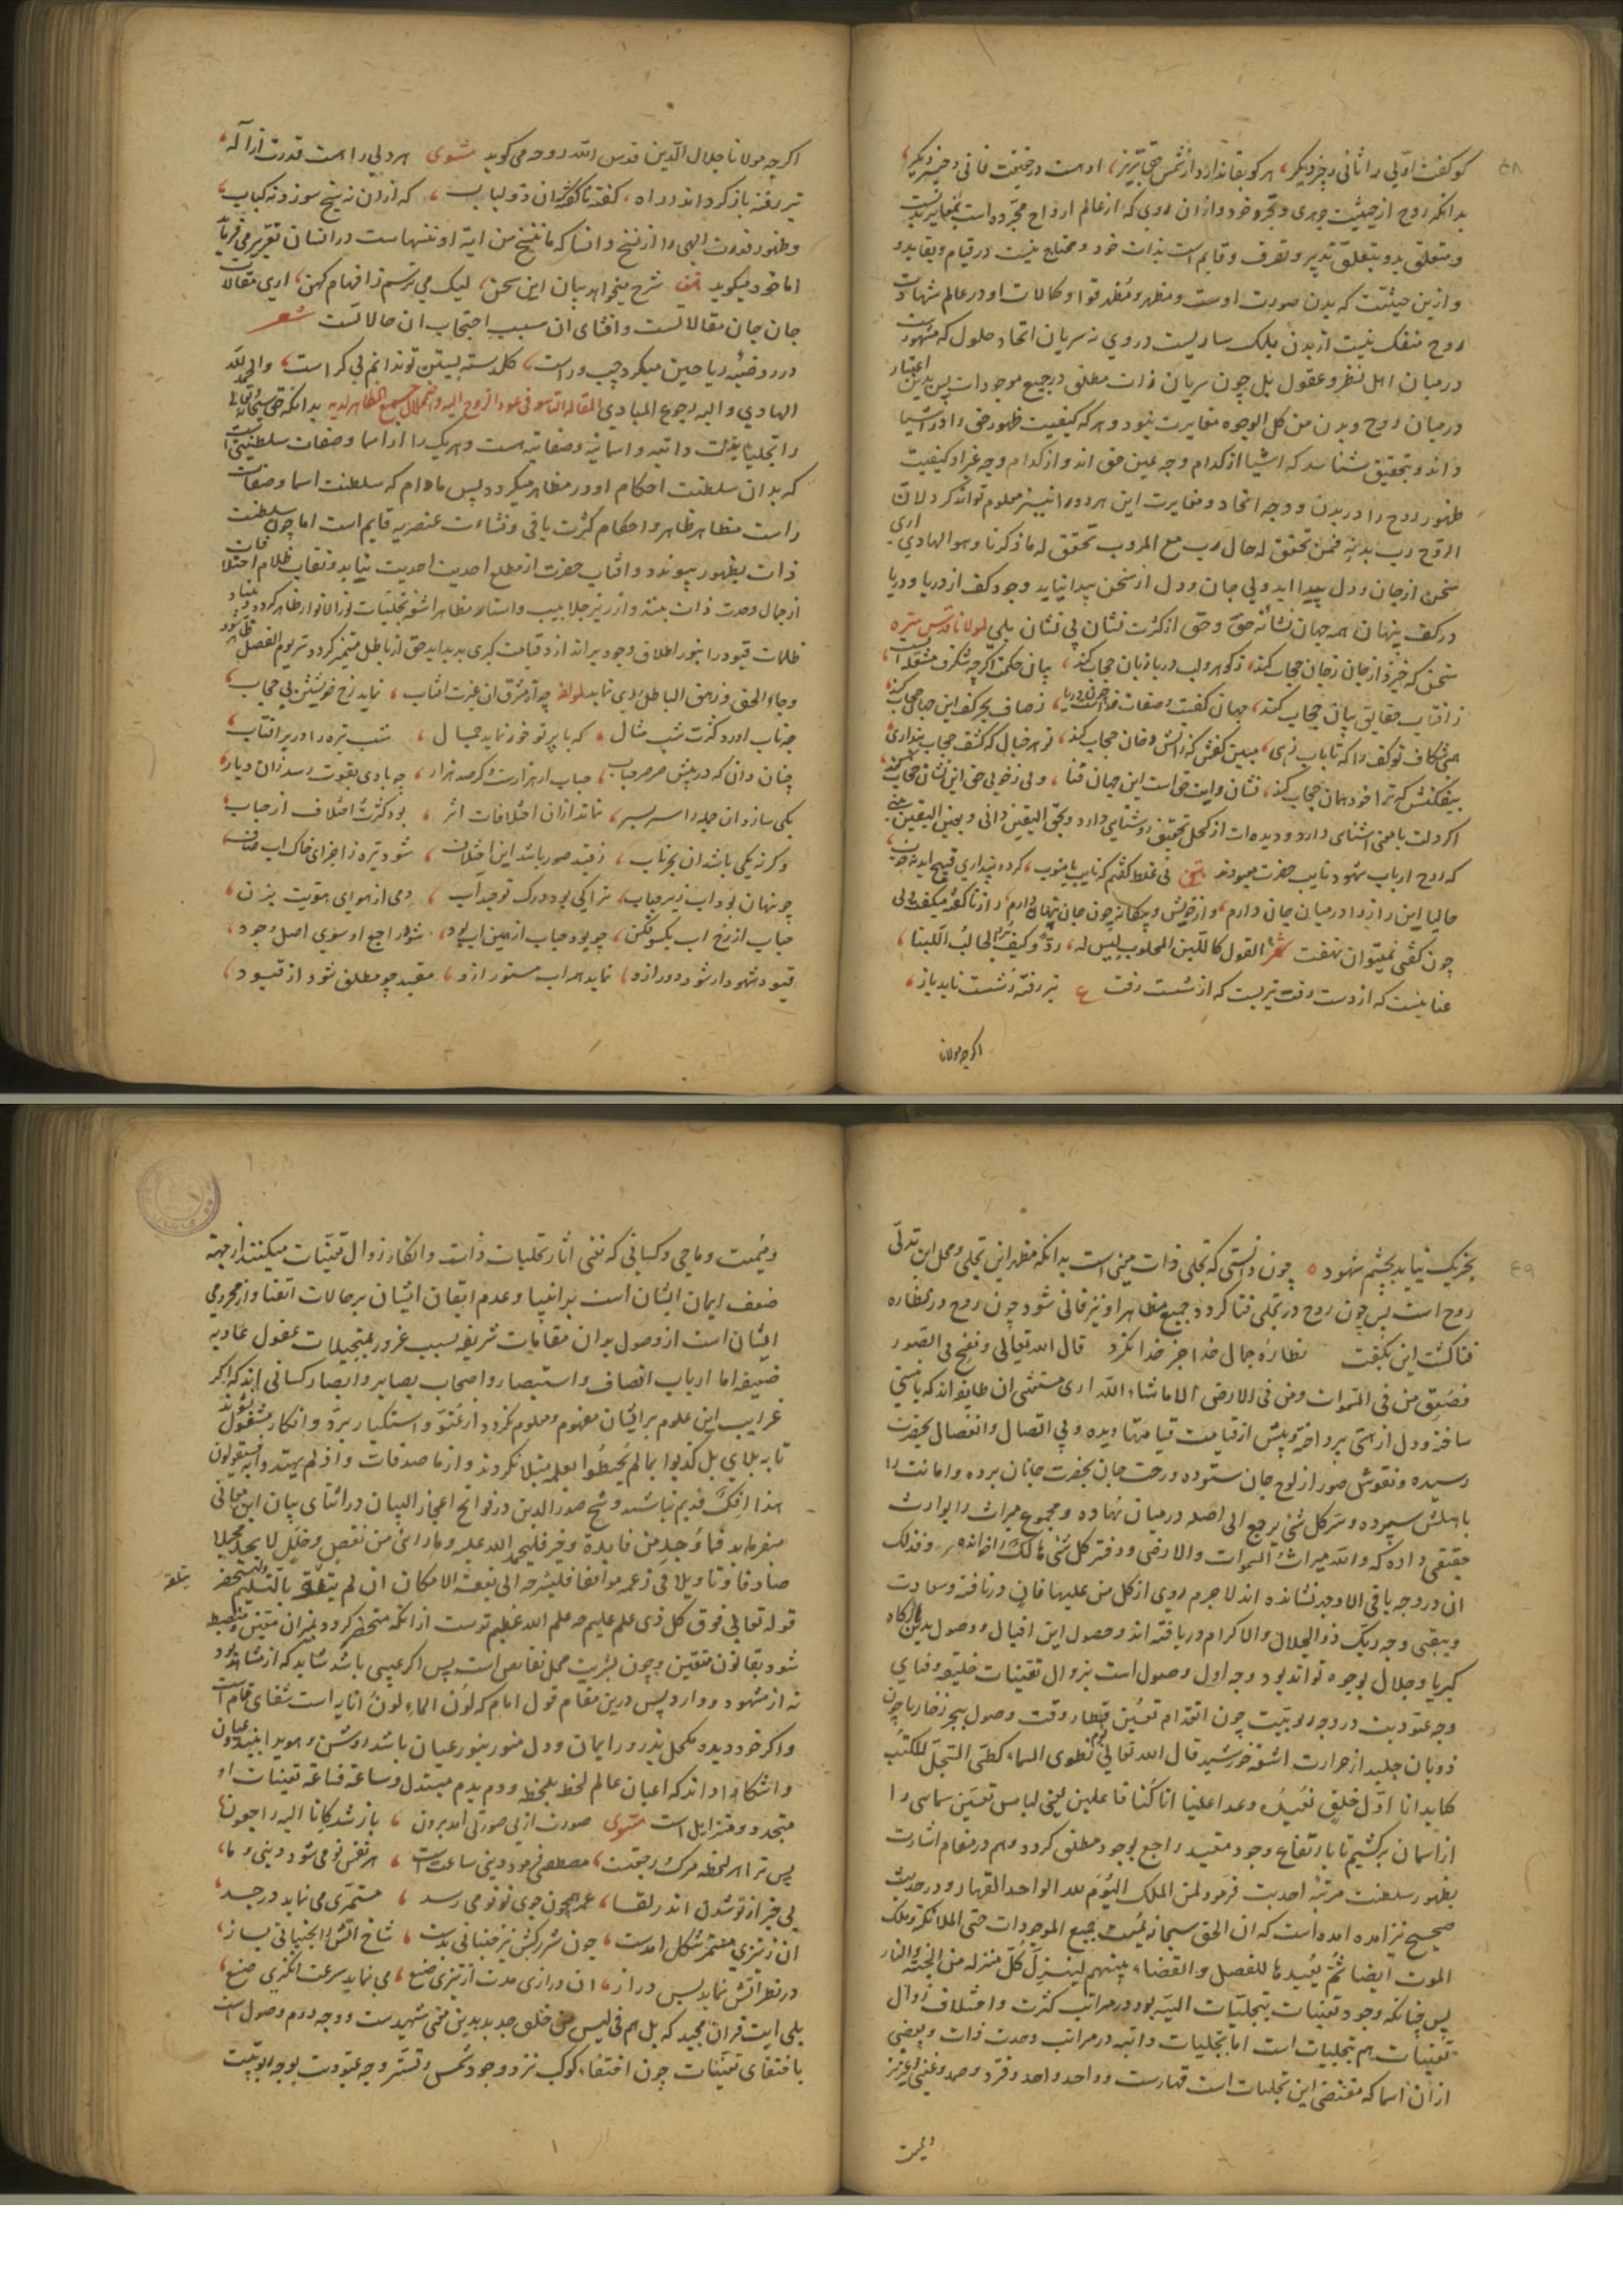 کو کفت اولی را ثانی و جز و یکر، هر کو بقا ندارد از شمس حق تبریز، او هست در حقیقت فانی و جز و یکر،
بدانکه روح از حیثیت جوهری و تجرد خود و از آن روی که از عالم ارواح مجرده است
و متعلق بدو بتعلق تدبیر و تصرف و قایم است بذات خود و محتاج نیست در قیام و بقا بدو
و از این حیثیت که بدن صورت اوست و مظهر و مظهر قوا و کمالات او در عالم شهادت
روح منفک نیست از بدن بلک ساریست در وی نه سریان اتحاد و حلول که مشهور است
در میان اهل نظر و عقول بل چون سریان ذات مطلق در جمیع موجودات پس بدین اعتبار
در میان روح و بدن من کل الوجوه مغایرت نبود و هر که کیفیت ظهور حق را در اشیا
داند و بتحقیق شناسد که اشیا از کدام وجه عین حق اند و از کدام وجه غیر او کیفیت
ظهور روح را در بدن و وجه اتحاد و مغایرت این هر دو را نیز معلوم تواند کرد لان
الروح رب بدنه فمن تحقق له حال رب مع المربوب تحقق له ما ذکرنا و هو الهادی اری
سخن از جان و دل پیدا اید ولی جان و دل از سخن پیدا نیاید وجود کف از دریا و دریا
در کف پنهان همه جهان نشانه حق و حق از کثرت نشان بی نشان بلی لمولانا قدس سره
سخن که خیزد از جان ز جان حجاب کند، ز کوهر و لب دریا زبان حجاب کند، بیان حکمت اکر چه شکرف مشعله است،
ز افتاب حقایق بیان حجاب کند، جهان کفت و صفات خداست چون دریا، ز صاف بحر کف این جهان حجاب کند
همی شکاف تو کف را که تا باب رسی، مبین کفش که ز نقش و فان حجاب کند، تو هر خیال که کشف حجاب پنداری
بیفکنش که ترا خود همان حجاب کند، نشان وایت حق است این جهان فنا، ولی ز خوبی حق این نشان حجاب کند
اکر دلت با معنی اشنای دارد و دیده ات از کحل تحقیق روشنایی دارد و بحق الیقین دانی و بعین الیقین بینی
که روح ارباب شهود نایب حضرت معبودند نی غلط کفتم که نایب با منوب، کر دو پنداری قبیح اید نه خوب،
حالیا این راز را در میان جان دارم، و از خویش و بیکانه چون جان پنهان دارم، راز ناکفته میکفت ولی
چون کفتی نمیتوان نهفت شعر القول کاللبن المحلوب لیس له، رد و کیف یرد الحالب اللبنا،
عنا نیست که از دست رفت تیریست که از شست رفت ع تیر رفته ز شست ناید باز،
اکرچه مولانا
اکرچه مولانا جلال الدین قدس الله روحه می کوید مثنوی هر ولی را هست قدرت از اله،
تیر رفته باز کرداند ز راه، کفته ناکفته کند از فتح باب، که از ان نه سیخ سوزد نه کباب،
و ظهور قدرت الهی را از نسخ و انسا که ما ننسخ من ایة او ننسها است در انسان تقریر می فرماید
اما خود میکوید شرح میخواهد بیان این سخن، لیک می ترسم ز افهام کهن، اری مقالات
جان جان مقالاتست و افشای ان سبب احتجاب ان حالاتست شعر
در روضه ریاحین میکرد چپ و راست، کلدسته بستن تو ندانم پی کراست، والحمد لله
الهادی و الیه رجوع المبادی المقالة التاسعة فی عود الروح الیه و اضمحلال جمیع المظاهر لدیه بدانکه حق سبحانه تعالی
را تجلیات ذاتیه و اسمائیه و صفاتیه هست و هر یک را از اسما و صفات سلطنتی است
که بدان سلطنت احکام او در مظاهر میکردد پس مادام که سلطنت اسما و صفات
راست مظاهر ظاهر و احکام کثرت باقی و نشاءت عنصریه قایم است اما چون سلطنت
ذات بظهور پیوندد و افتاب حضرت از مطلع احدیت نماید و نقاب ظلام اختلافات
از جمال وحدت ذات بیفتد و از زیر جلابیب و استار مظاهر اشعه تجلیات نور الانوار ظاهر کردد و بنیاد
ظلمات قیود را بنور اطلاق وجود براندازد قیامت کبری پدید اید حق از باطل متمیز کردد سر یوم الفصل ظاهر شود
و جاء الحق و زهق الباطل روی نماید لمولفه چو از مشرق ان عزت افتاب، نماید رخ خویشتن بی حجاب،
چه تاب اورد کثرت شب مثال، که با پرتو خور نماید جمال، شب تیره را در بر افتاب،
چنان دان که در پیش صرصر حباب، حباب ار هزارست و کر صد هزار، چو بادی بقوت رسد زان دیار،
یکی سازد ان جمله را سر بسر، نماند از ان اختلافات اثر، بود کثرت اختلاف از حباب،
و کر نه یکی باشد ان بحر ناب، ز قید صور باشد این اختلاف، شود تیره ز اجزای خاک اب صاف،
چو پنهان بود اب زیر حباب، ترا کی بود درک توحید اب، دمی از هوای هویت بزن،
حباب از رخ اب یکسو فکن، چو بود حباب از همین اب بود، شود راجع او سوی اصل وجود،
قیود شهود ار شود دور ازو، نماید هم اب مستور ازو، مقید چو مطلق شود از قیود،
بجز یک نیاید بچشم شهود ه چون دانستی که تجلی ذات مفنی است بدانکه مظهر این تجلی و محل این تدلی
روح است پس چون روح در تجلی فنا کردد جمیع مظاهر او نیز فانی شود چون روح در نظاره
فنا کشت این بکفت نظارۀ جمال خدا جز خدا نکرد قال الله تعالی و نفخ فی الصور
فصعق من فی السموات و من فی الارض الا ما شاء الله اری مستثنی ان طایفه اند که با نیستی
ساخته و دل از هستی پرداخته و پیش از قیامت قیامتها دیده و بی اتصال و انفصال بحضرت
رسیده و نقوش صور از لوح جان سترده و رخت جان بحضرت جانان برده و امانت را
باهلش سپرده و سر کل شئ یرجع الی اصله در میان نهاده و مجموع میراث را بوارث
حقیقی داده که و لله میراث السموات والارض و دفتر کل شئ هالک را خوانده و فذلک
ان در وجه باقی الا وجهه نشانده اند لا جرم روی از کل من علیها فان در تافته و سعادت
و یبقی وجه ربک ذو الجلال والاکرام دریافته اند و حصول این اقبال و وصول بدین درکاه
کبریا و جلال بوجوه تواند بود وجه اول وصول است بزوال تعینات خلقیه و فنای
وجه عبودیت در وجه ربوبیت چون انعدام تعین قطار وقت وصول ببحر زخار یا چون
ذوبان جلید از حرارت اشعه خورشید قال الله تعالی یوم نطوی السماء کطی السجل للکتب
کما بدانا اول خلق نعیده وعدا علینا انا کنا فاعلین یعنی لباس تعین سمایی را
از اسمان برکشیم تا بارتفاع وجود مقید راجع بوجود مطلق کردد و هم در مقام اشارت
بظهور سلطنت مرتبه احدیت فرمود لمن الملک الیوم لله الواحد القهار و در حدیث
صحیح نیز امده امده است که ان الحق سبحانه یمیت جمیع الموجودات حتی الملائکة و ملک
الموت ایضا ثم یعیدها للفصل والقضاء بینهم لینزل کل منزله من الجنة والنار
پس چنانکه وجود تعینات بتجلیات الهیه بود در مراتب کثرت و اختلاف زوال
تعینات هم بتجلیات است اما بتجلیات ذاتیه در مراتب وحدت ذات و بعضی
از ان اسما که مقتضی این تجلیات است قهارست و واحد و احد و فرد و صمد و غنی و عزیز
و ممیت
و ممیت و ماحی و کسانی که نفی اثار تجلیات ذات و انکار زوال تعینات میکنند از جهة
ضعف ایمان ایشان است بر انبیا و عدم ایقان ایشان بر حالات اتقیا و از محرومی
ایشان است از وصول بدان مقامات شریفه بسبب غرور بتخیلات عقول عادیه
ضعیفه اما ارباب انصاف و استبصار و اصحاب بصایر و ابصار کسانی اند که اکر
غرایب این علوم بر ایشان مفهوم و معلوم نکردد از عتو و استکبار برد و انکار مشغول نشوند
تا به بلای بل کذبوا بما لم یحیطوا بعلمه مبتلا نکردند و از ما صدقات و اذ لم یهتدوا به فسیقولون
هذا افک قدیم نباشند و شیخ صدر الدین در فواتح اعجاز البیان در اثنای بیان این معانی
میفرماید فما وجد من فایدة و خیر فلیحمد الله علیه و ما رائ من نقص و خلل لا یجد محملا
صادقا و تاویلا فی زعمه موافقا فلیسرحه الی بقعة الامکان ان لم یتلقه بالتسلیم و لیستحضر
یتلقه
قوله تعالی فوق کل ذی علم علیم چه علم الله عظیم تر ست از انکه منحصر کردد بمیزان معین و منضبط
شود بقانون متعین و چون بشریت محل نقایص است پس اکر عیبی باشد شاید که از شاهد بود
نه از مشهود و وارد پس درین مقام قول امام که لون الماء لون انایه است شفای تمام است
و اکر خود دیده مکحل بذرور ایمان و دل منور بنور عیان باشد روشن و هویدا بیند عیان
و اشکارا داند که اعیان عالم لحظه بلحظه و دم بدم متبدل و ساعة فساعة تعینات او
متجدد و متزایل است مثنوی صورت از بی صورتی امد برون، باز شد کانا الیه راجعون،
پس ترا هر لحظه مرک و رجعتیست، مصطفی فرمود دنیی ساعتیست، هر نفس نو می شود دنیی و ما،
بی خبر از نو شدن اندر بقا، عمر همچون جوی نو نو می رسد، مستمری می نماید در جسد،
ان ز تیزی مستمر شکل امدست، چون شرر کش تیز جنبانی بدست، شاخ اتش را بجنبانی بساز،
در نظر اتش نماید بس دراز، ان درازی مدت از تیزی صنع، می نماید سرعت انکیزی صنع،
بلی ایت قران مجید که بل هم فی لبس من خلق جدید بدین معنی شهیدست و وجه دوم وصول است
باختفای تعینات چون اختفاء کوکب نزد وجود شمس و تستر وجه عبودیت بوجه ربوبیت